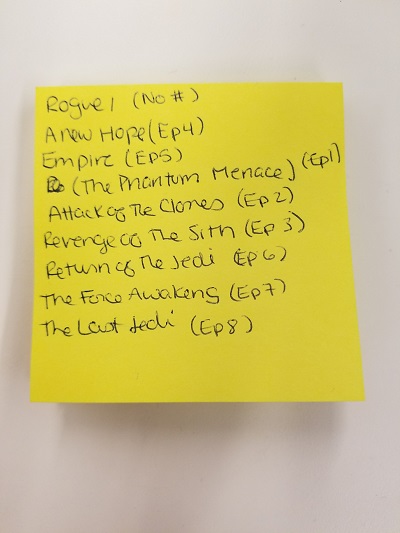 Rogue 1 (No #)
A new Hope (Ep4)
Empire (EP5)
(The Phantom Menace) (Ep1)
Attack of The Clones (Ep 2)
Revenge of The Sith (Ep 3)
Return of The Jedi (Ep 6)
The Force Awakens (Ep7)
The Last Jedi (Ep8)